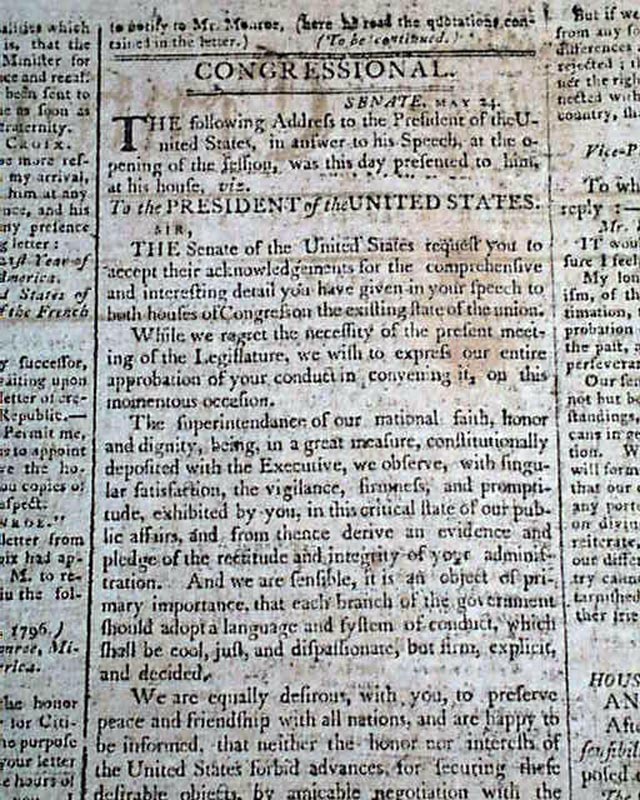 alities which
is, that the
Minister for
been sent to
as soon as
fraternity.
CROIX.
more ref-
my arrival,
him at any
nce, and his
my presence
letter :
21st Year of
America.
States of
the French
successor,
waiting upon
letter of cre-
Republic.—
Permit me,
as to appoint
the ho-
you copies of
respect.
letter from
had ap-
M. to re-
in the fol-
1796.)
Monroe, Mi-
the honor
for Citi-
purpose
your letter
hours of
to notify to Mr. Monroe, (here he read the quotations con-
tained in the letter.) (To be continued.)
CONGRESSIONAL.
SENATE, MAY 24.
THE following Addreſs to the Preſident of the U-
nited States, in anſwer to his Speech, at the o-
pening of the ſeſſion, was this day preſented to him,
at his houſe, viz.
To the PRESIDENT of the UNITED STATES.
SIR,
THE Senate of the United States requeſt you to
accept their acknowledgements for the comprehenſive
and intereſting detail you have given in your ſpeech to
both houſes of Congreſs on the exiſting ſtate of the union.
While we regret the neceſſity of the preſent meet-
ing of the Legiſlature, we wiſh to expreſs our entire
approbation of your conduct in convening it, on this
momentous occaſion.
The ſuperintendance of our national faith, honor
and dignity, being, in a great meaſure, conſtitutionally
depoſited with the Executive, we obſerve, with ſingu-
lar ſatiſfaction, the vigilance, firmneſs, and prompti-
tude, exhibited by you, in this critical ſtate of our pub-
lic affairs, and from thence derive an evidence and
pledge of the rectitude and integrity of your adminiſ-
tration. And we are ſenſible, it is an object of pri-
mary importance, that each branch of the government
ſhould adopt a language and ſyſtem of conduct, which
ſhall be cool, juſt, and diſpaſſionate, but firm, explicit,
and decided.
We are equally deſirous, with you, to preſerve
peace and friendſhip with all nations, and are happy to
be informed, that neither the honor nor intereſts of
the United States forbid advances, for ſecuring theſe
deſirable objects, by amicable negotiation with the
But if we
from any
differences
rejected ;
the right
nected with
country,
Vice-P
To wh
reply :—
Mr.
IT wou
ſure I feel
My lon
iſm, of th
timation,
probation
the paſt, a
perſeveran
Our ſen
not but be
ſtandings,
cans in
tion. W
will form
that our
any port
on divin
reiterate,
our differ
try cann
tarniſhed
ther
HOUS
AN
After
ſenſibil
poſed
The